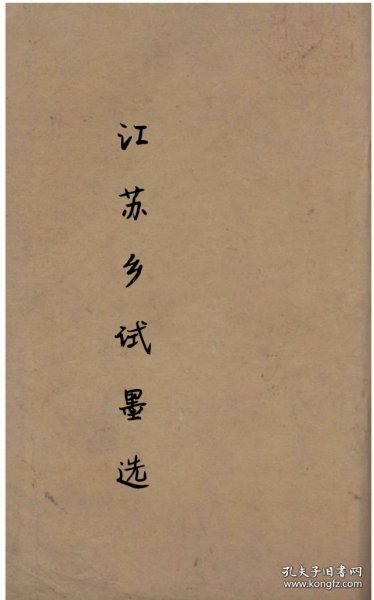 江苏乡试墨选
孔夫子旧书网
www.kongfz.com